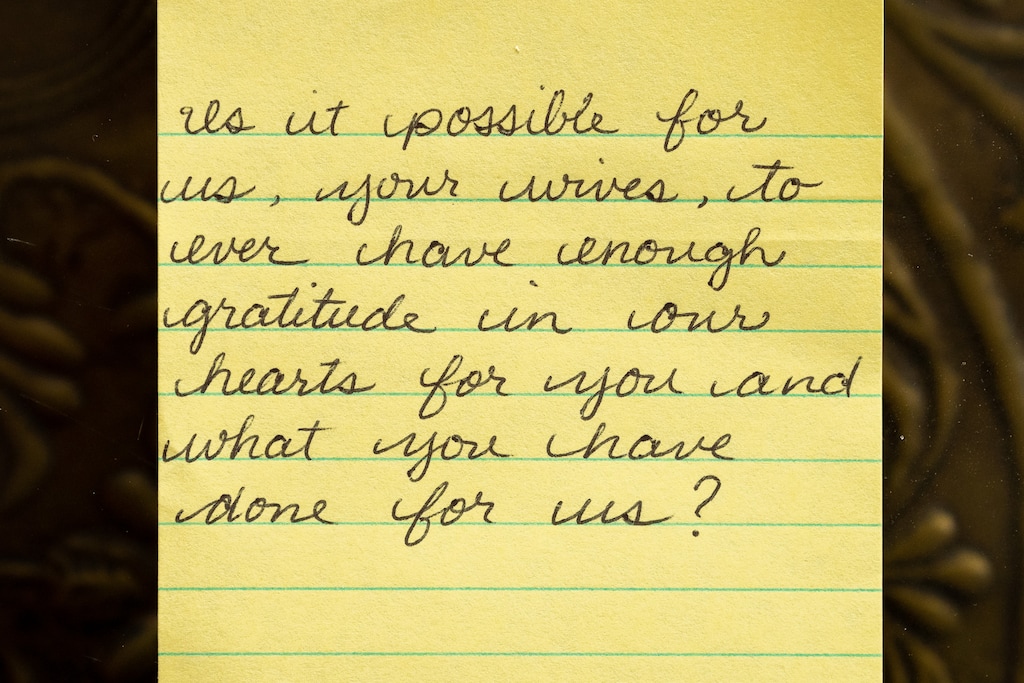 Is it possible for
us, your wives, to
ever have enough
gratitude in our
hearts for you and
what you have
done for us?